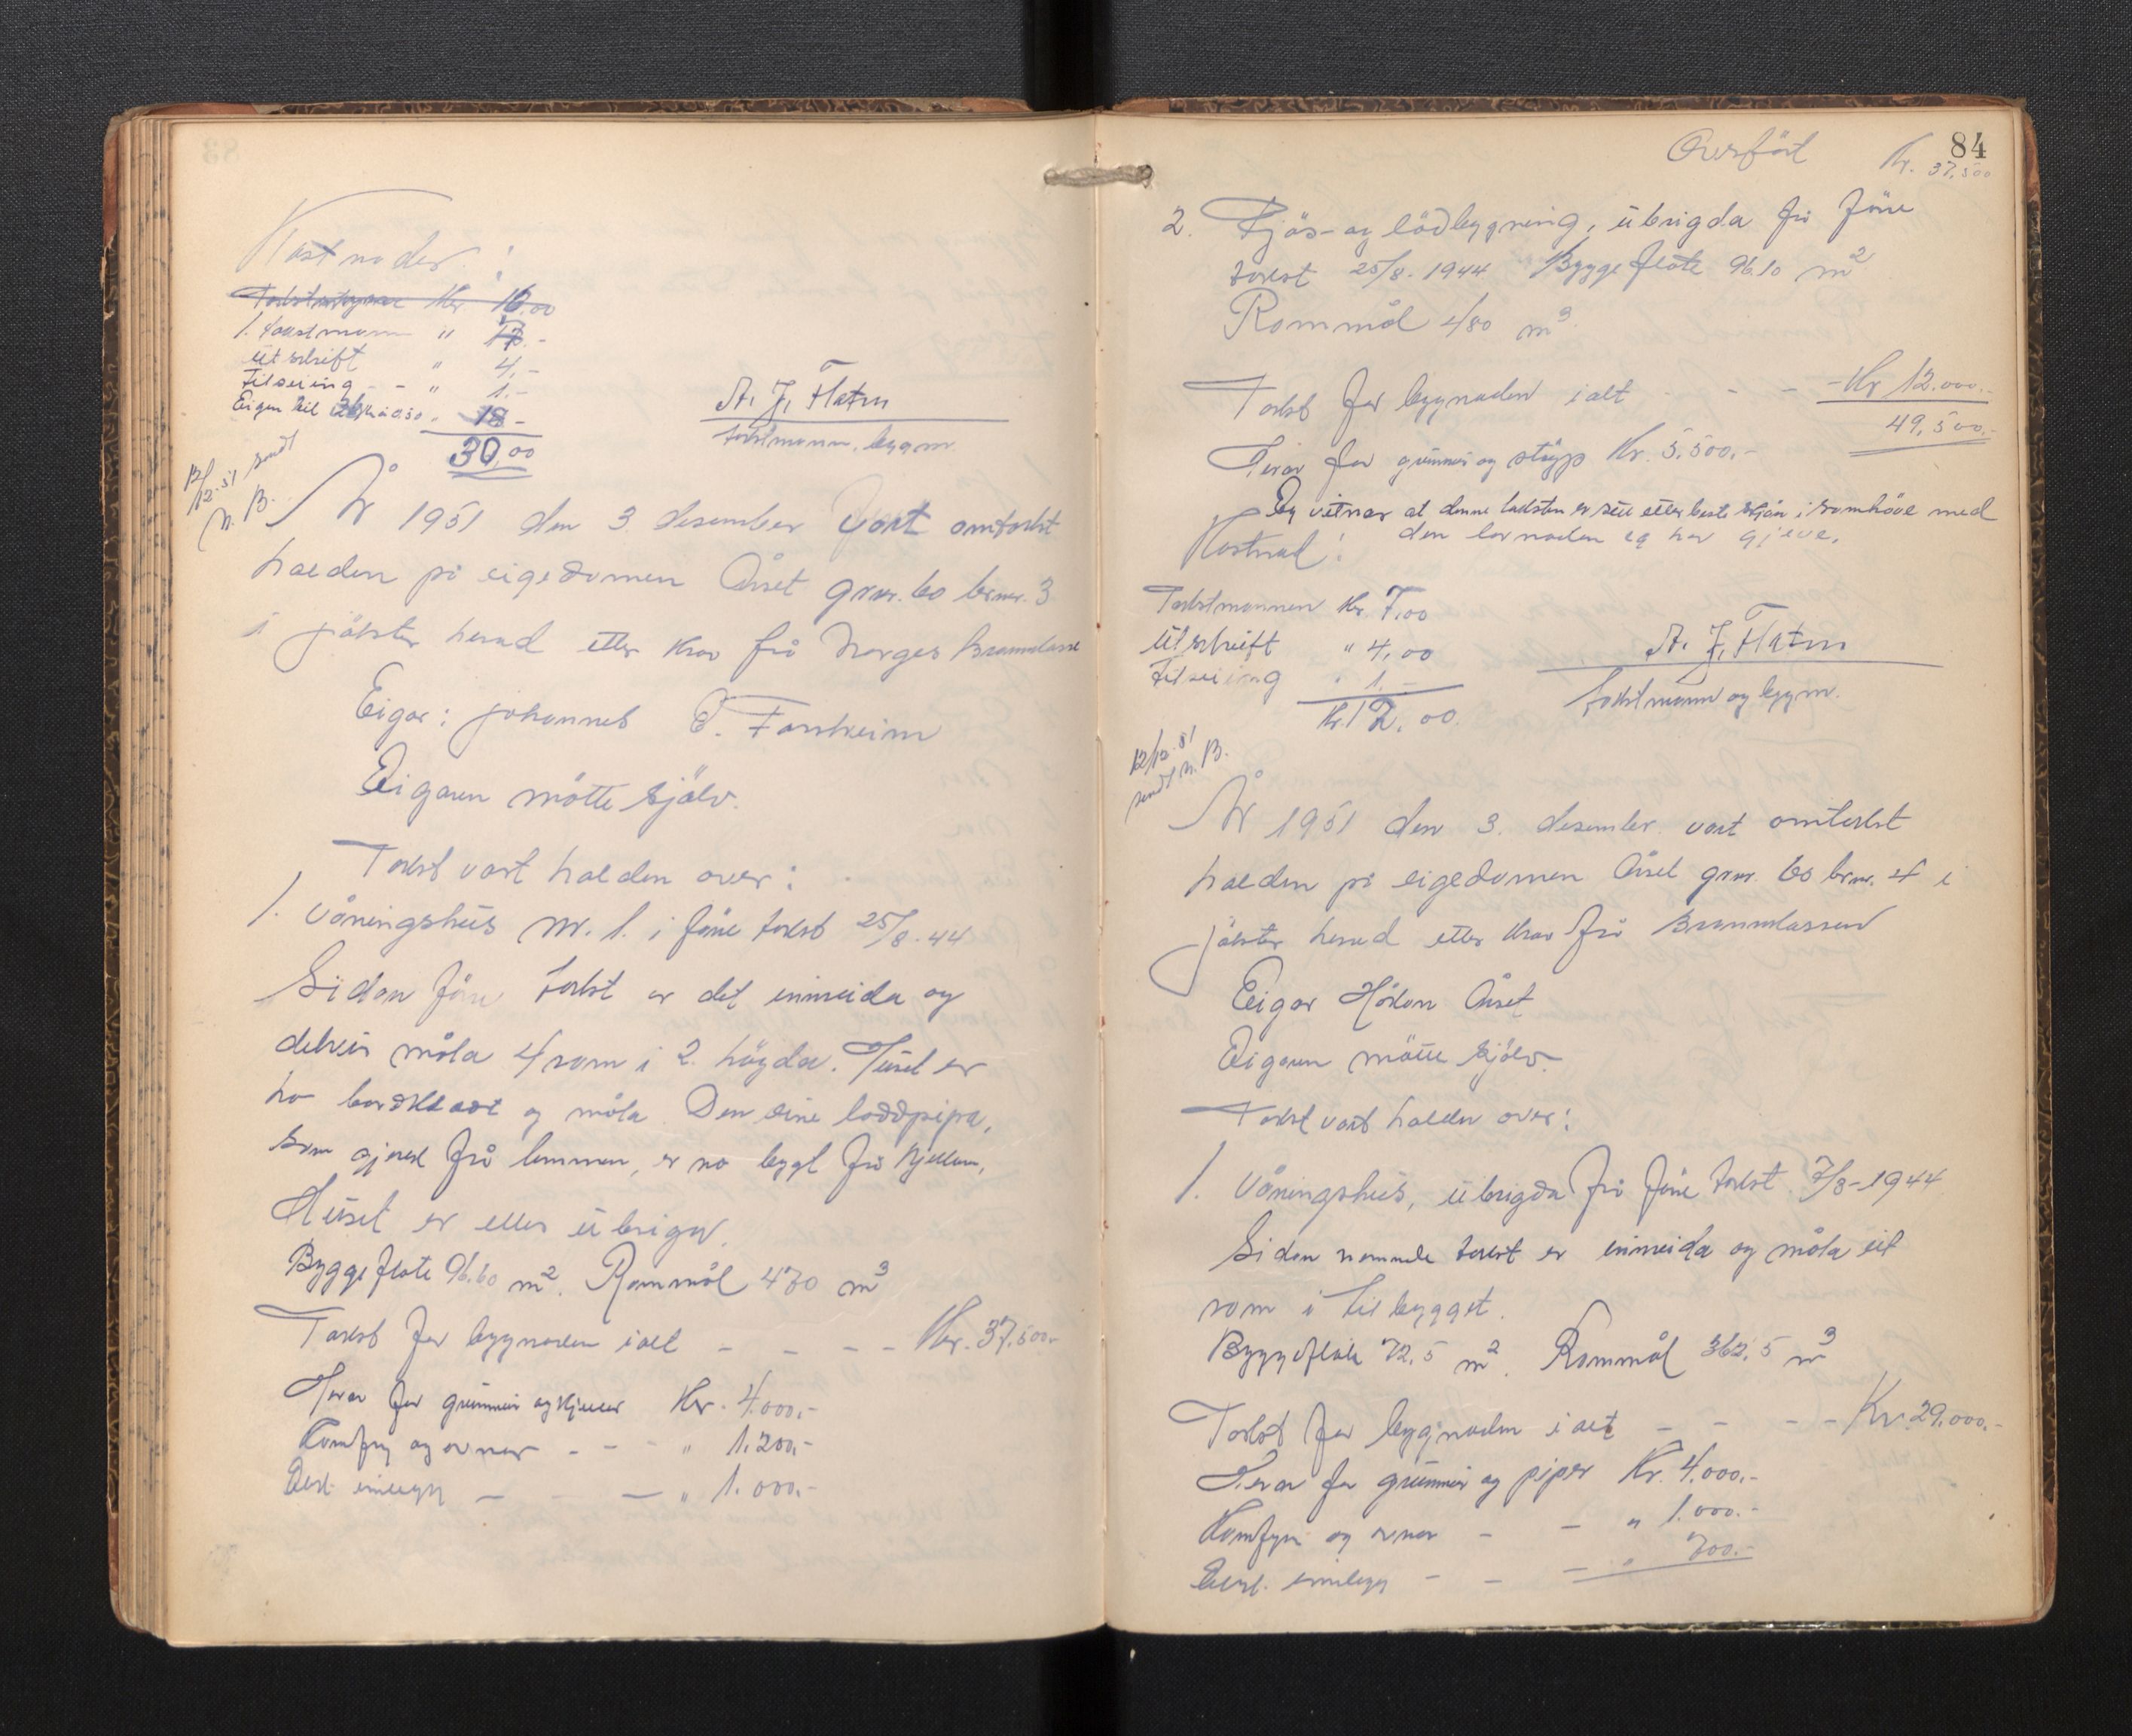 Kostnader:
Takstmennene Kr 16.00
1. takstmann " 7.-
Utskrift " 4,-
Tilseiing - - " 1.-
Eigen bil 18.-
30.00
12/12-51 sendt
N. B.
A. J. Flaten
takstmann, bygm.
År 1951 den 3. desember vart omtakst
halden på eigedomen Åset grnr. 60 brnr. 3
i Jølster herad etter krav frå Norges Brannkasse
Eigar: Johannes E. Fonsheim
Eigaren møtte sjølv.
Takst vart halden over:
1. Våningshus nr. 1. i førre takst 25/8-44
Sidan førre takst er det innreida og
delvis måla 4 rom i 2. høgda. Huset er
no bordkledt og måla. Den eine loddpipa,
som gjekk frå lemmen, er no bygt frå kjellar,
Huset er elles ubrigda.
Byggeflate 96.60 m². Rommål 470 m³
Takst for bygnaden i alt - - - - Kr. 37,500.-
Herav for grunnmur og kjellar Kr. 4.000,-
Komfyr og ovnar - - - " 1.200,-
Elekt. innlegg - - - " 1.000,-
84
Overført Kr. 37,500
2. Fjøs- og lødbygning, ubrigda frå førre
takst 25/8. 1944 Byggeflate 96.10 m²
Rommål 480 m³.
Takst for bygnaden i alt - - - Kr 12.000.-
49,500.-
Herav for grunnmur og støyp Kr. 5.500.-
Eg vitnar at denne taksten er sett etter beste skjøn i samhøve med
den lovnaden eg har gjeve.
Kostnad:
Takstmannen Kr. 7,00
Utskrift " 4,00
Tilseiing " 1.-
Kr. 12,00.
A. J. Flaten
takstmann og bygm.
12/12-51
sendt N. B.
År 1951 den 3. desember vart omtakst
halden på eigedomen Åset grnr. 60 brnr. 4 i
Jølster herad etter krav frå Brannkassen
Eigar Håkon Åset
Eigaren møtte sjølv.
Takst vart halden over:
1. Våningshus, ubrigda frå førre takst 7/8-1944
Sidan nemnde takst er innreida og måla eit
rom i tilbygget.
Byggeflate 72,5 m². Rommål 362,5 m³
Takst for bygnaden i alt - - - - Kr 29.000.-
Herav for grunnmur og piper Kr. 4.000.-
Komfyr og ovnar - - " 1.000.-
Elekt. innlegg - - - " 700.-